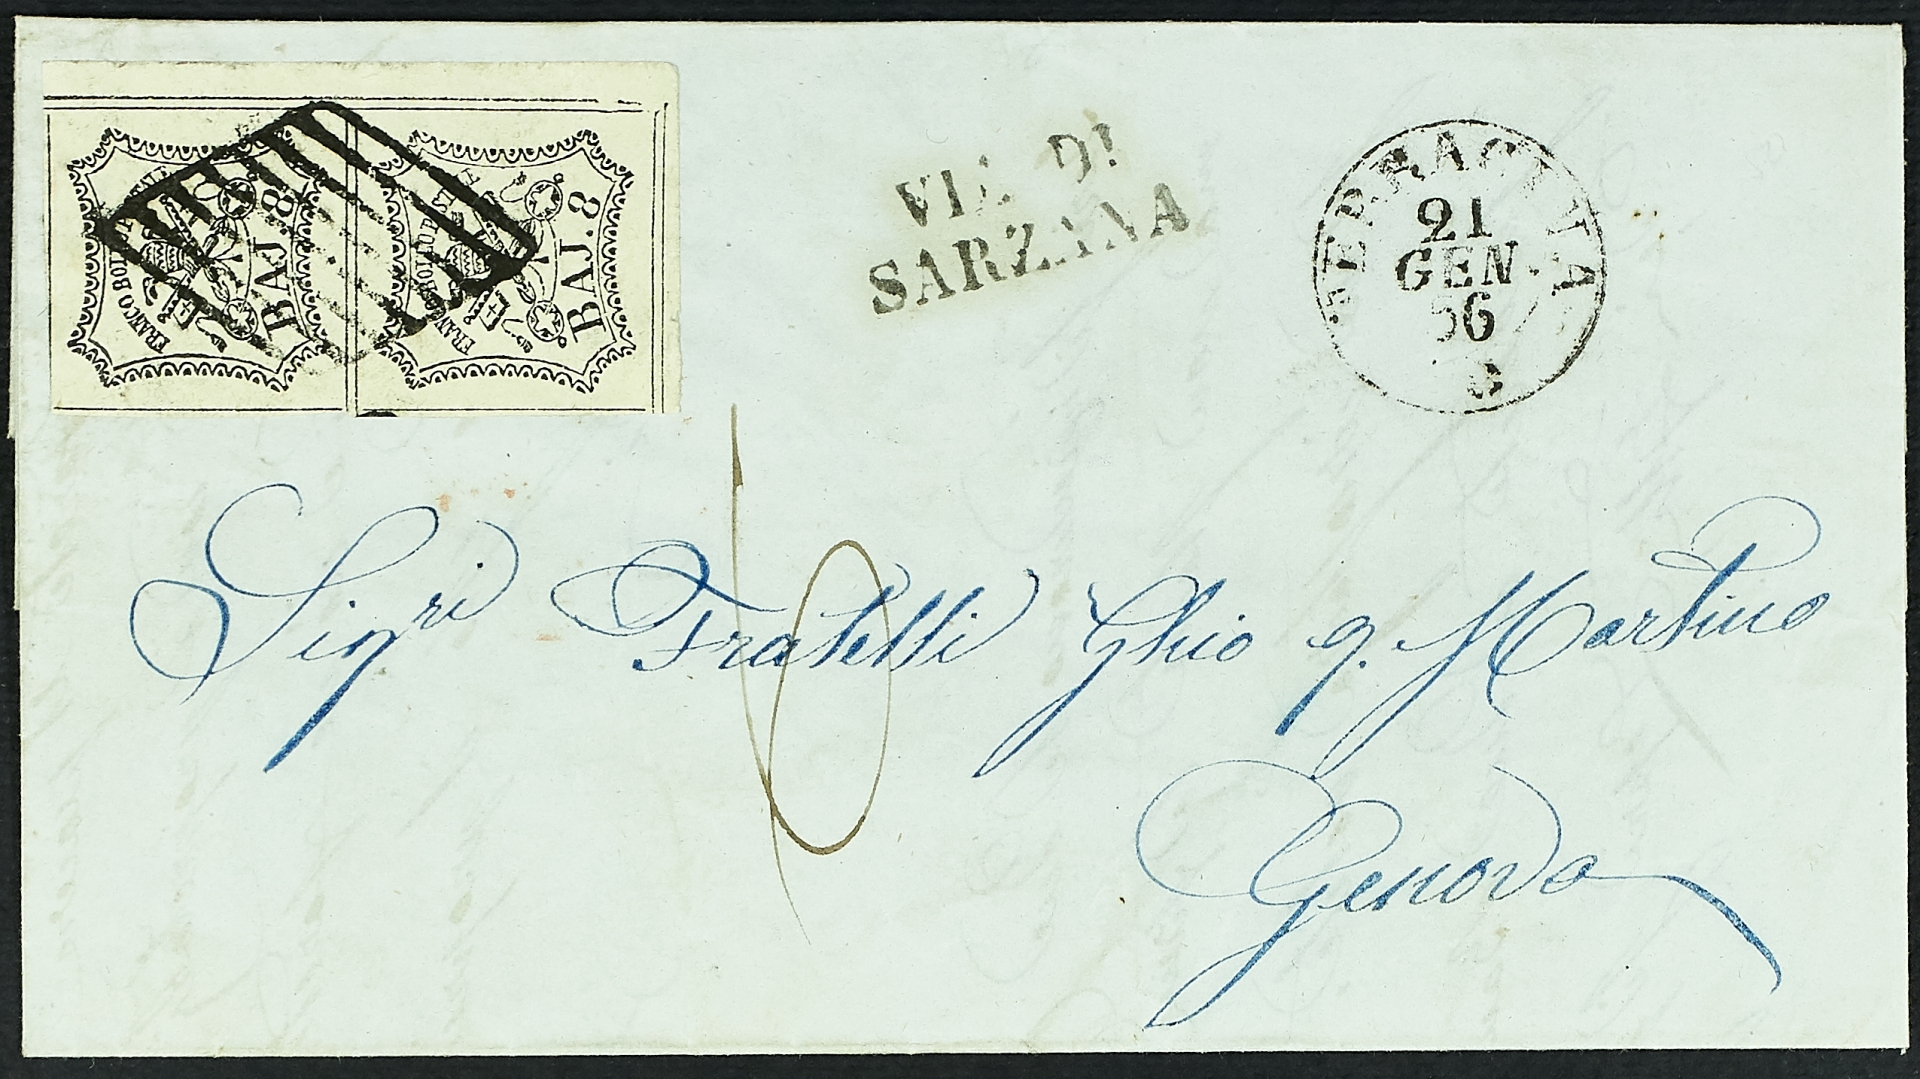 FRANCO BOLLO POSTALE
BAJ. 8
FRANCO BOLLO POSTALE
BAJ. 8
VIA DI
SARZANA
TERRACINA
21
GEN
56
10
Sigri Fratelli Ghio q. Martino
Genova